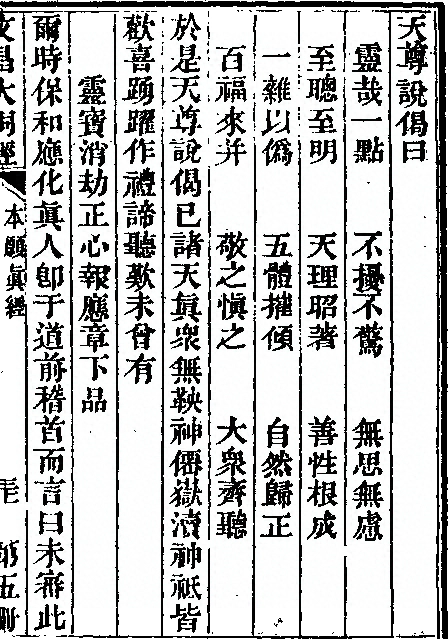 天尊說偈曰
靈哉一點　不擾不驚　無思無慮
至聰至明　天理昭著　善性根成
一雜以僞　五體摧傾　自然歸正
百福來幷　敬之愼之　大衆齊聽
於是天尊說偈已諸天眞衆無鞅神僊嶽瀆神祇皆
歡喜踴躍作禮諦聽歎未曾有
靈寶消劫正心報應章下品
爾時保和應化眞人卽于道前稽首而言曰未審此
文昌大洞經　本願眞經　第五